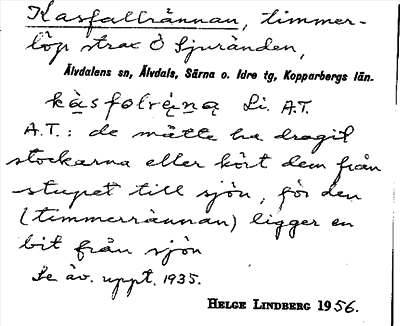 Kasfallrännan, timmer-
löp strax Ö Sjuränden,
Älvdalens sn, Älvdals, Särna o. Idre tg, Kopparbergs län.
Li. A.T.
A.T.: de måtte ha dragit
stockarna eller kört dem från
stupet till sjön, för den
(timmerrännan) ligger en
bit från sjön
Se äv. uppt. 1935.
HELGE LINDBERG 1956.